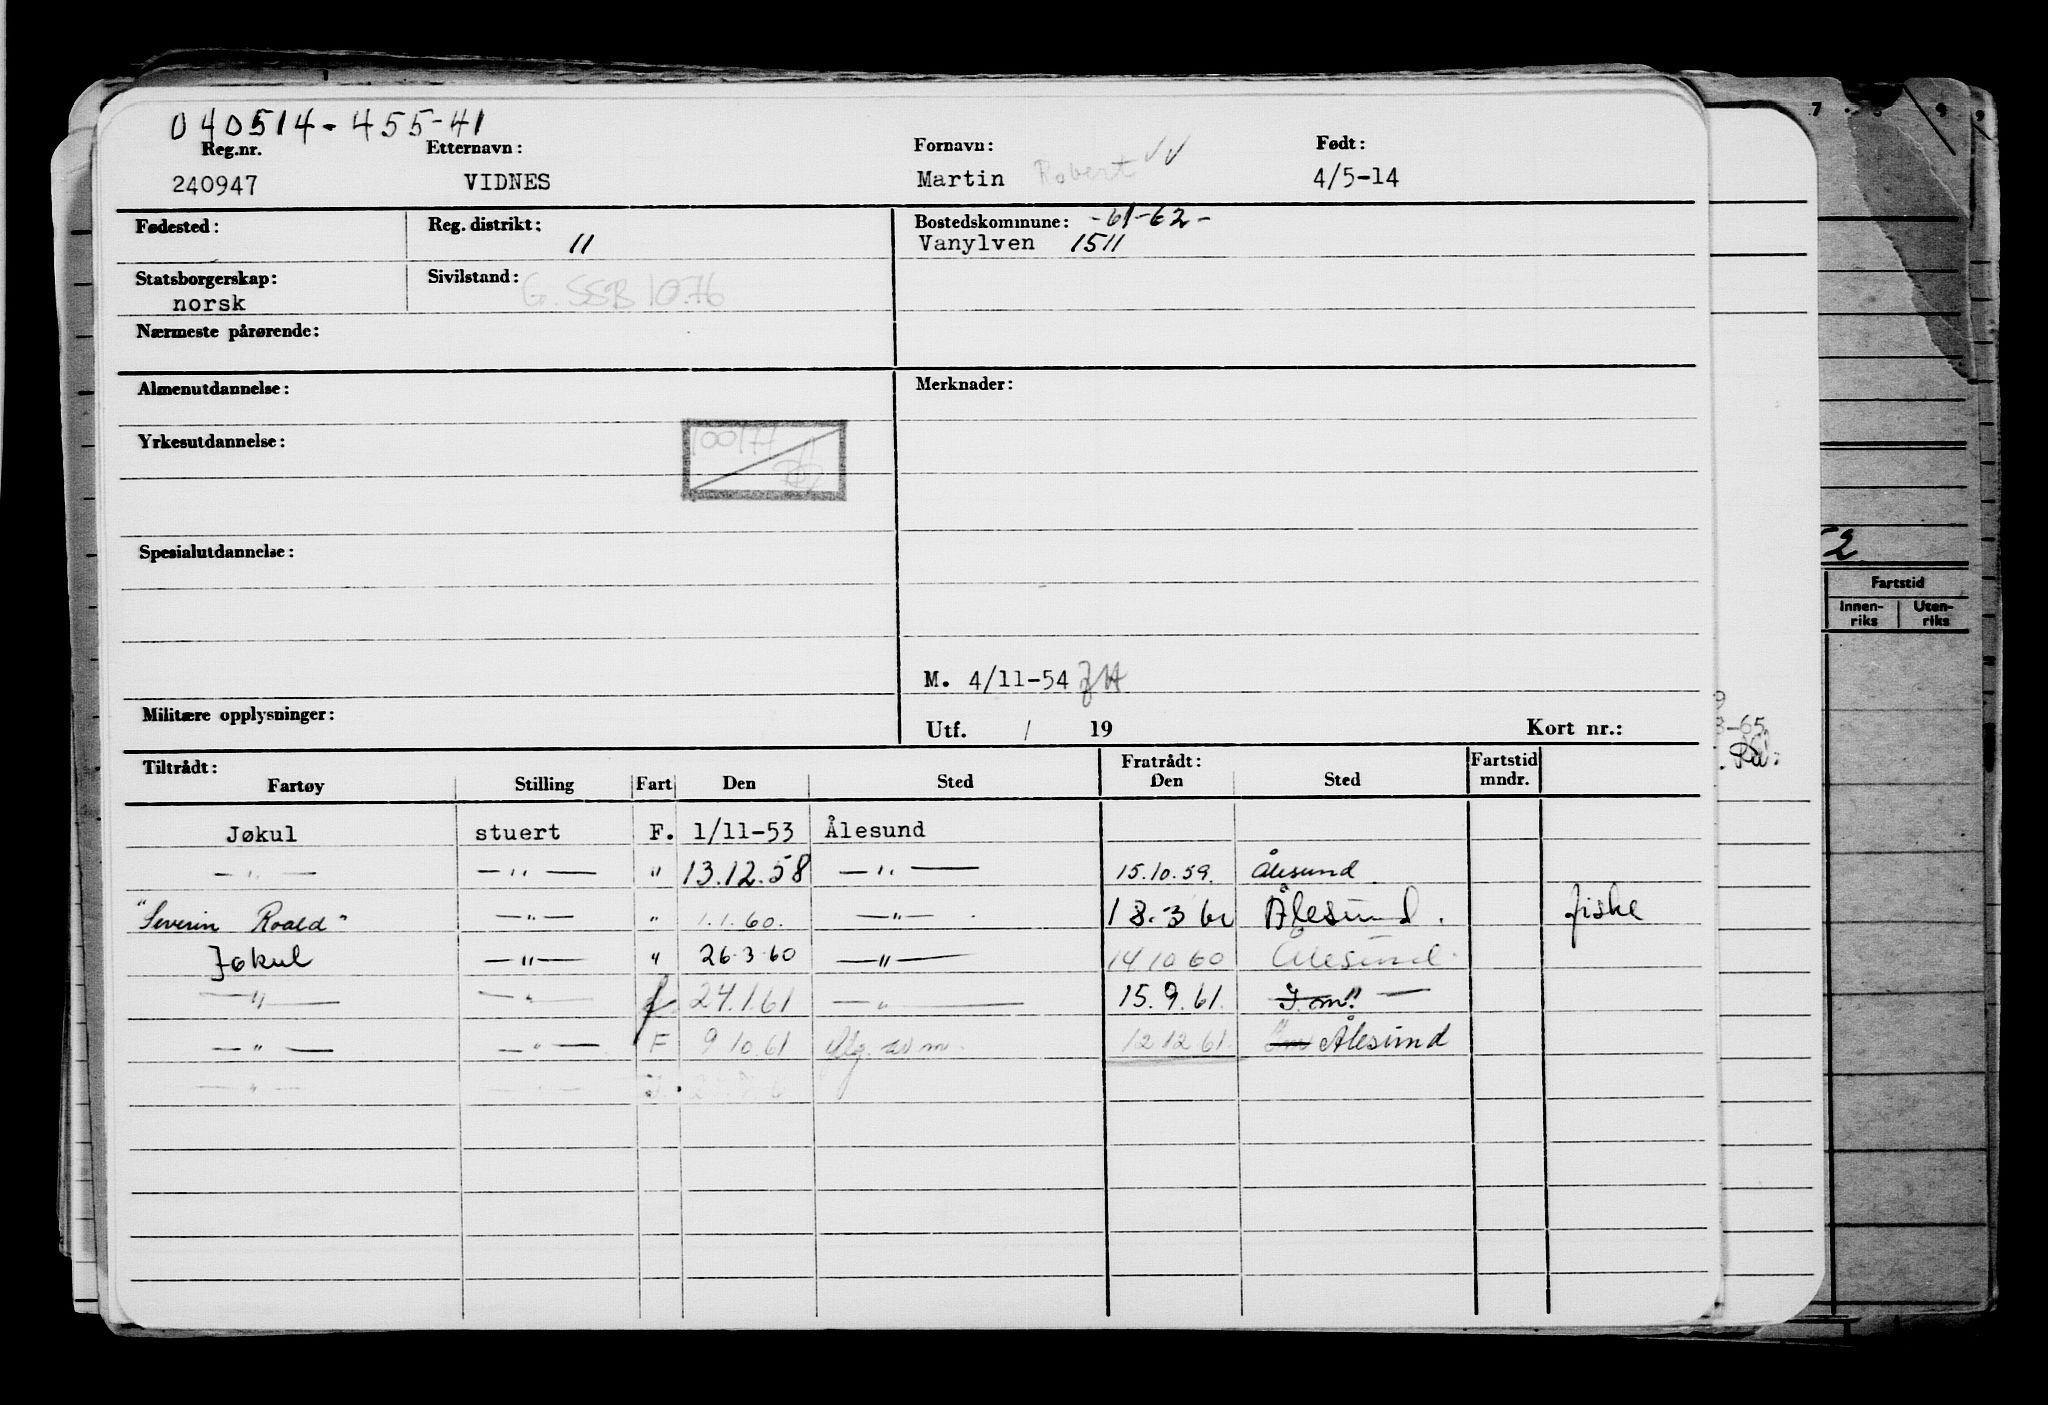 040514-455-41
Reg.nr. Etternavn: Fornavn: Født:
240947 VIDNES Martin Robert 4/5-14
Fødested: Reg. distrikt: 11 Bostedskommune: -61-62-
Vanylven 1511
Statsborgerskap: norsk Sivilstand: G. SSB 10.76
Nærmeste pårørende:
Almenutdannelse: Merknader:
Yrkesutdannelse:
Spesialutdannelse:
M. 4/11-54
Militære opplysninger: Utf. / 19 Kort nr.:
Tiltrådt: Fratrådt: Fartstid
Fartøy Stilling Fart Den Sted Den Sted mndr.
Jøkul stuert F. 1/11-53 Ålesund
—"— —"— " 13.12.58 —"— 15.10.59. Ålesund
"Severin Roald" —"— " 1.1.60. —"— 18.3 60 Ålesund. fiske
Jøkul —"— " 26.3.60 —"— 14 10 60 Ålesund.
—"— —"— f. 24.1.61 —"— 15.9.61. —"—
—"— —"— F 9 10.61 12 12 61. Ålesund
—"— —"—
52
Fartstid
Innen-riks Uten-riks
-65